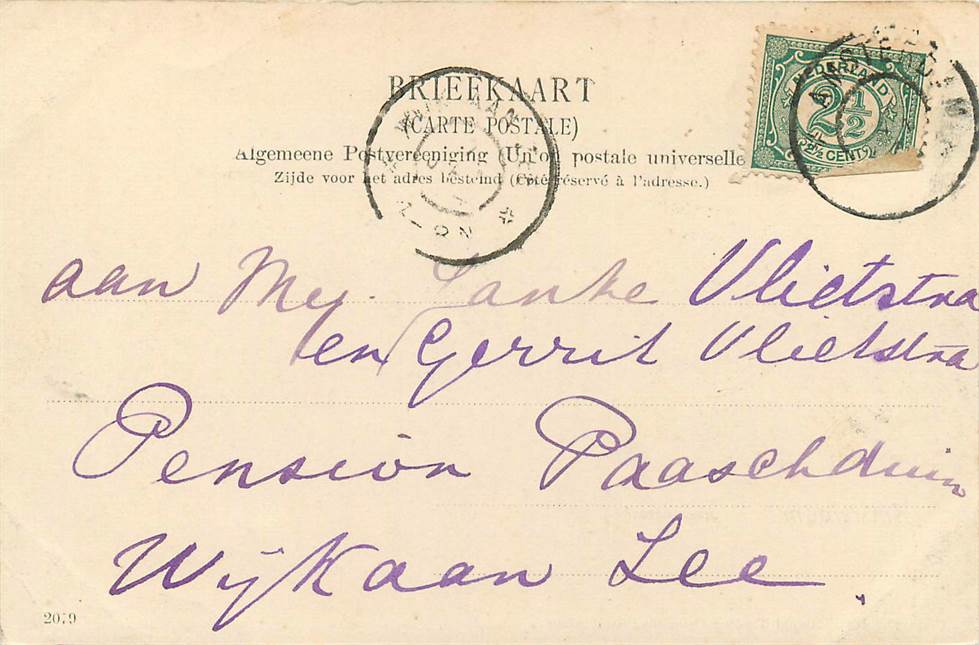 BRIEFKAART
(CARTE POSTALE)
Algemeene Postvereeniging (Union postale universelle
Zijde voor het adres bestemd (Côté réservé à l'adresse.)
NEDERLAND
2½
2½ CENT
AMSTERDAM
aan Mej. Janke Vlietstra
en Gerrit Vlietstra
Pension Paaschduin
Wijk aan Zee
2079